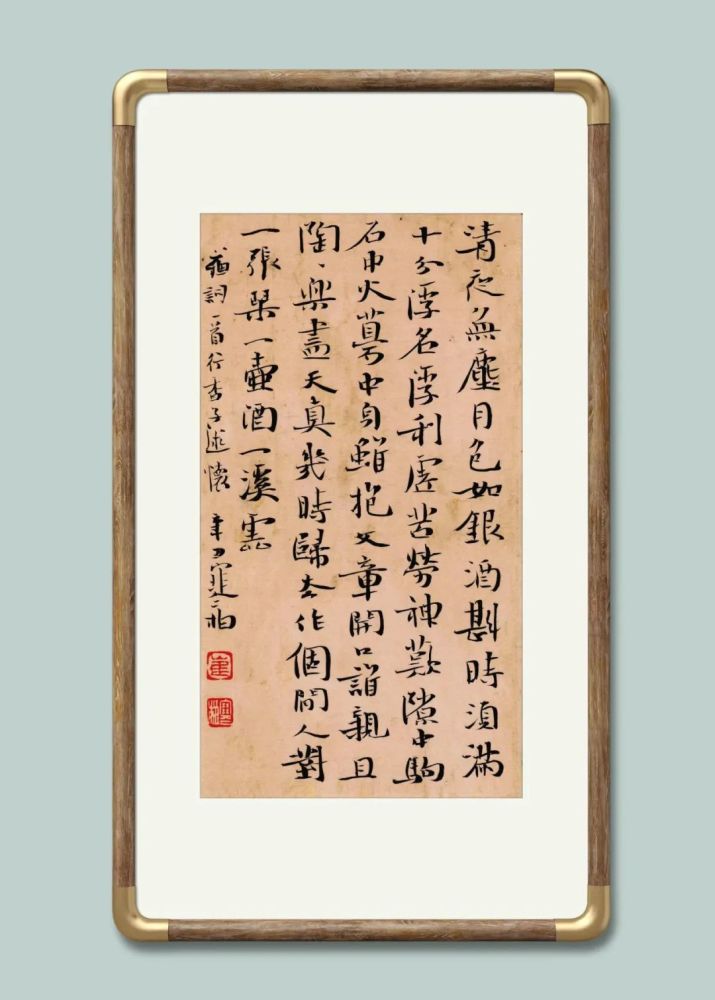 清夜無塵月色如銀酒斟時須滿
十分浮名浮利虛苦勞神歎隙中駒
石中火夢中身雖抱文章開口誰親且
陶、樂盡天真幾時歸去作個閒人對
一張琴一壺酒一溪雲
蘇詞一首行香子述懷 辛丑